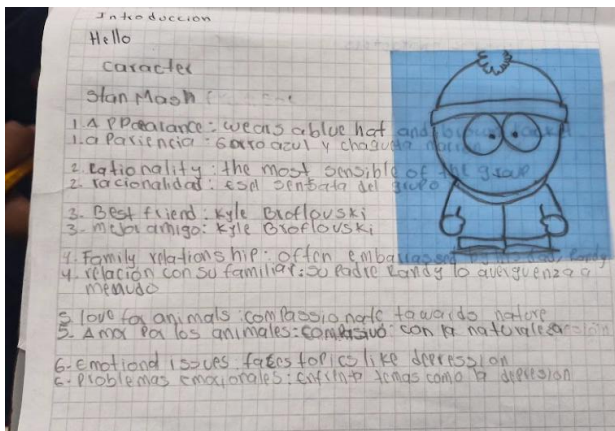 Introduccion
Hello
caracter
Stan Mash
1. APPearance: wears a blue hat and brown jacket
1. aPariencia: Gorro azul y chaqueta marron
2. rationality: the most sensible of the group
2. racionalidad: esel sensata del grupo
3. Best friend: Kyle Broflovski
3. mejor amigo: Kyle Broflovski
4. Family relationship: often embarrassed by his dad, Randy
4. relacion con su familiar: su Padre Randy lo averguenza a
menudo
5 love for animals: compassionate towards nature
5. Amor Por los animales: compasivo con la naturaleza
6. Emotiond issues: faces topics like depression
6. Problemas emocionales: enfrenta temas como la depresion